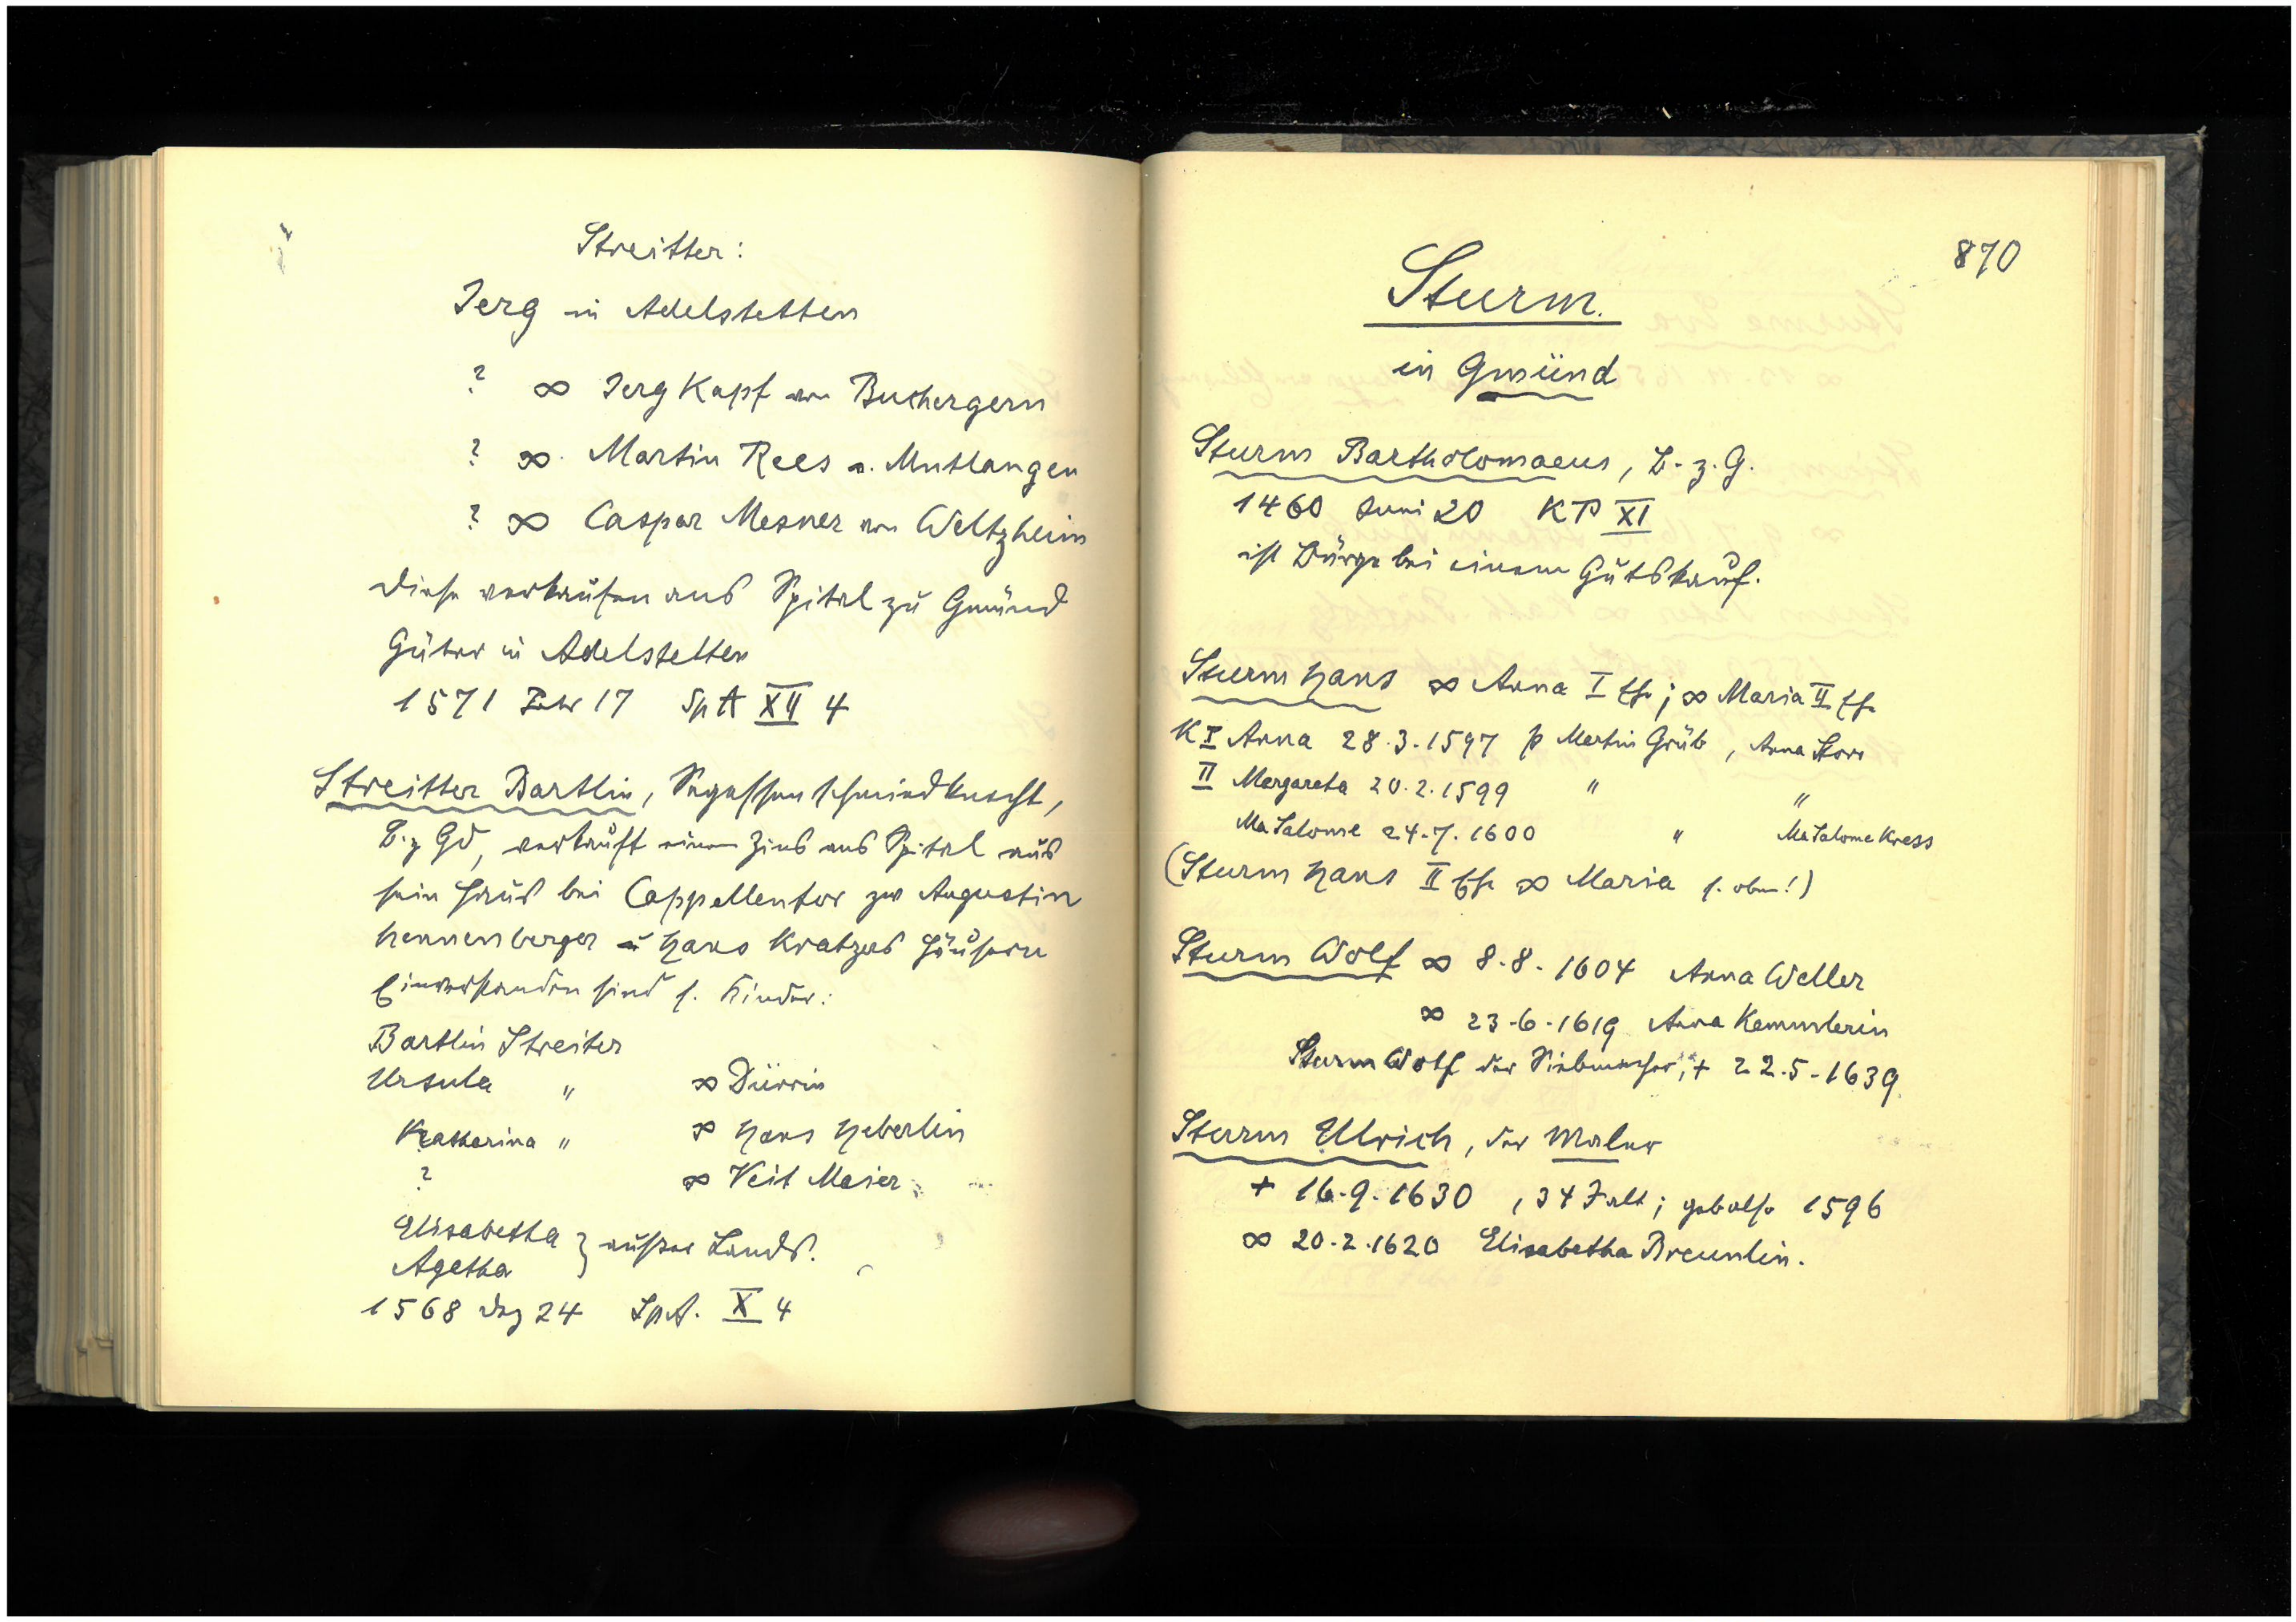 Streitter:
Jerg in Adelstetten
? ∞ Jerg Kapf von Buchergern
? ∞ Martin Rees v. Mutlangen
? ∞ Caspar Mesner von Weltzheim
Diese verkaufen ans Spital zu Gmünd
Güter in Adelstetten
1571 Febr 17 SpA XII 4
Streitter Bartlin, Segessenschmiedknecht,
B. z Gd, verkauft einen Zins ans Spital aus
sein Haus bei Cappellentor zw Augustin
Hennenberger u Hans Kratzers Häusern
Einverstanden sind s. Kinder:
Bartlin Streiter
Ursula " ∞ Dürrin
Katharina " ∞ Hans Heberlin
? ∞ Veit Maier
Elisabetha } ausser Lands.
Agatha
1568 Dez 24 SpA. X 4
870
Sturm.
in Gmünd
Sturm Bartholomaeus, B. z. G.
1460 Juni 20 KP XI
ist Bürge bei einem Gutskauf.
Sturm Hans ∞ Anna I Ehe; ∞ Maria II Ehe
K I Anna 28.3.1597 p Martin Grüb, Anna Storr
II Margareta 20.2.1599 " "
Ma Salome 24.7.1600 " Ma Salome Kress
(Sturm Hans II Ehe ∞ Maria s. oben!)
Sturm Wolf ∞ 8.8.1604 Anna Weller
∞ 23.6.1619 Anna Kemmlerin
Sturm Wolf der Siebmacher, + 22.5.1639.
Sturm Ulrich, der Maler
+ 16.9.1630, 34 J alt; geb also 1596
∞ 20.2.1620 Elisabetha Breunlin.